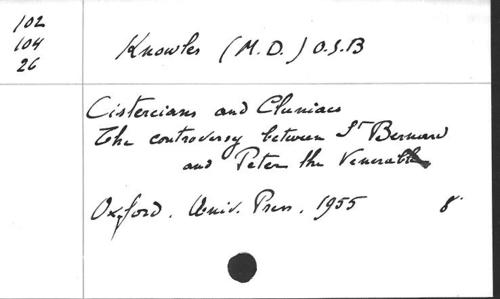 102
104
26
Knowles (M.D.) O.S.B
Cistercians and Cluniacs
The controversy between St Bernard
and Peter the Venerable
Oxford. Univ. Press. 1955 8°